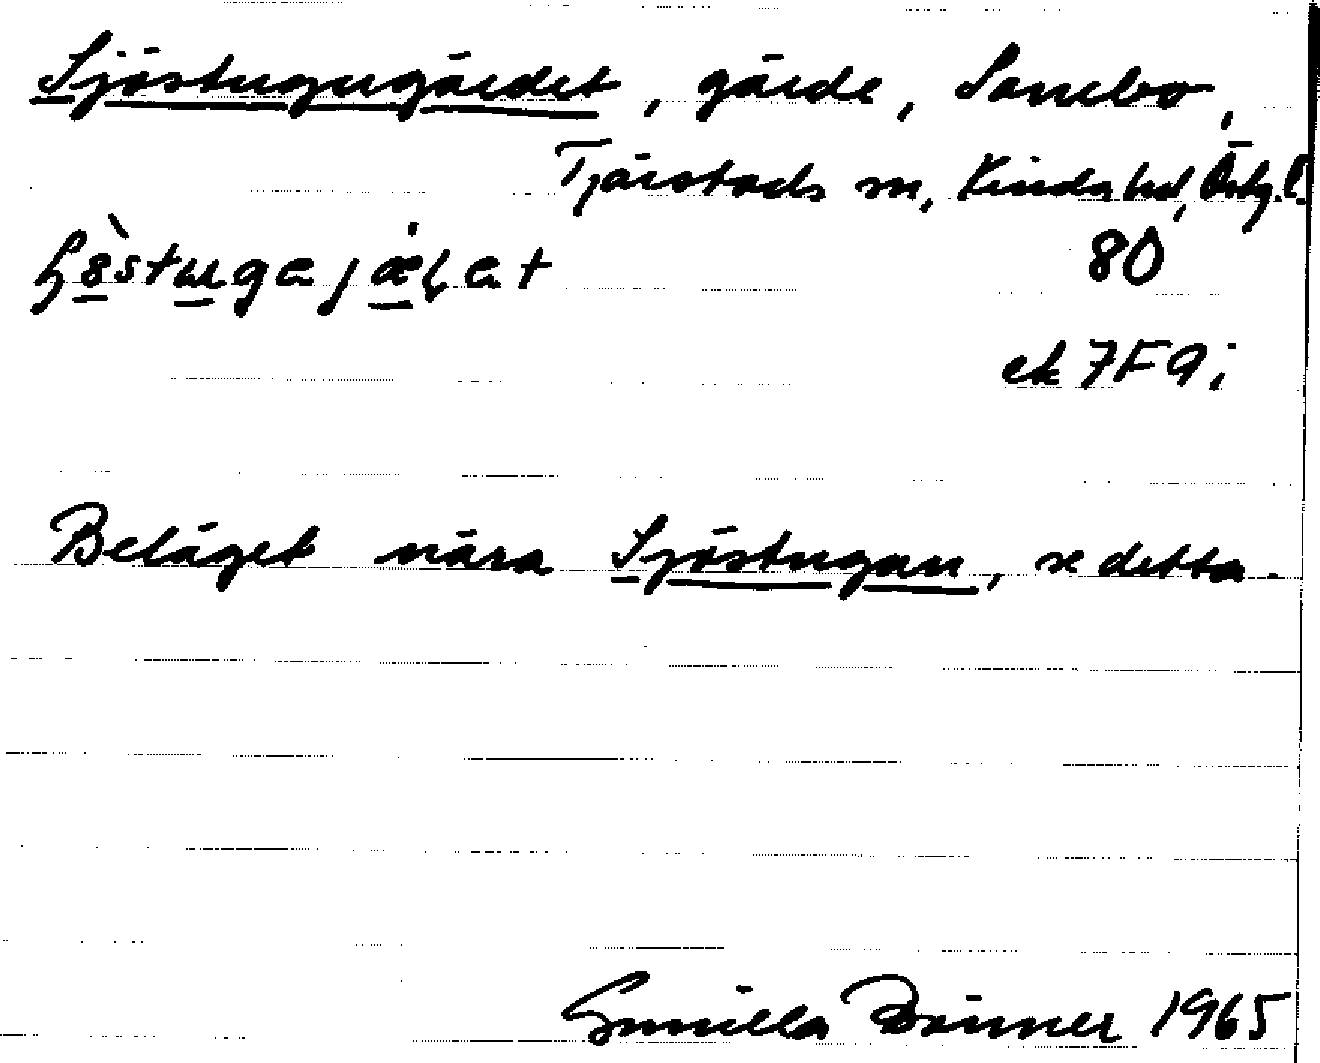 Sjöstugugärdet, gärde, Sanebo,
Tjärstads sn, Kinda hd, Östg. l.
80
ek 7F9i
Beläget nära Sjöstugan, se detta.
Gunilla Bonner 1965